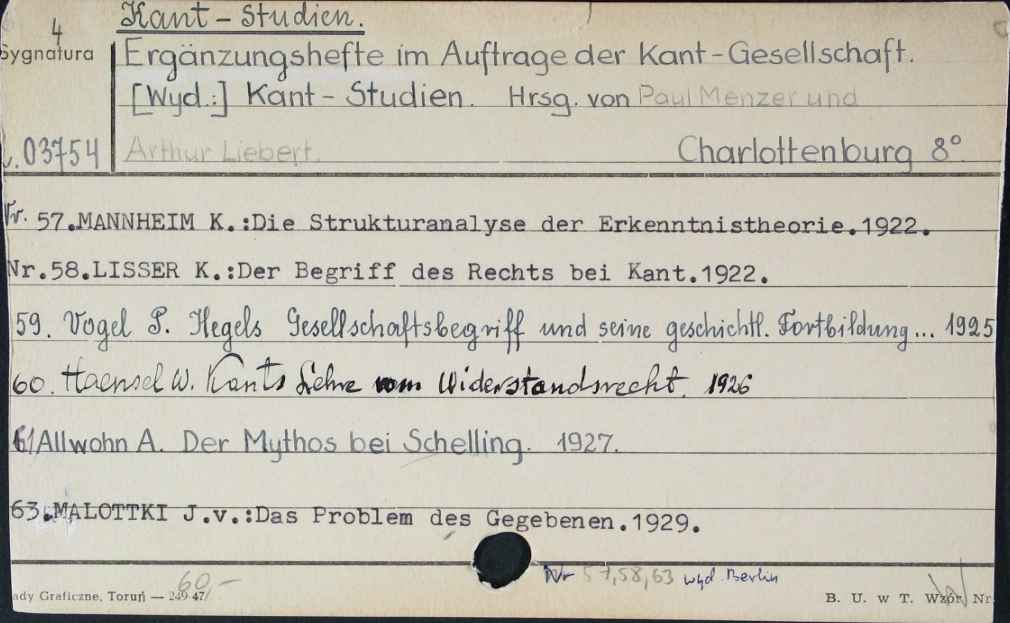 4
Kant-Studien.
Sygnatura
Ergänzungshefte im Auftrage der Kant-Gesellschaft.
[Wyd.:] Kant-Studien. Hrsg. von Paul Menzer und
03754 Arthur Liebert. Charlottenburg 8°
Nr. 57.MANNHEIM K.:Die Strukturanalyse der Erkenntnistheorie.1922.
Nr.58.LISSER K.:Der Begriff des Rechts bei Kant.1922.
59. Vogel P. Hegels Gesellschaftsbegriff und seine geschichtl. Fortbildung... 1925
60. Haensel W. Kants Lehre vom Widerstandsrecht. 1926
61 Allwohn A. Der Mythos bei Schelling. 1927.
63.MALOTTKI J.v.:Das Problem des Gegebenen.1929.
Nr 57,58,63 wyd. Berlin
60,-
ady Graficzne, Toruń — 249 47 B. U. w T. Wzór Nr